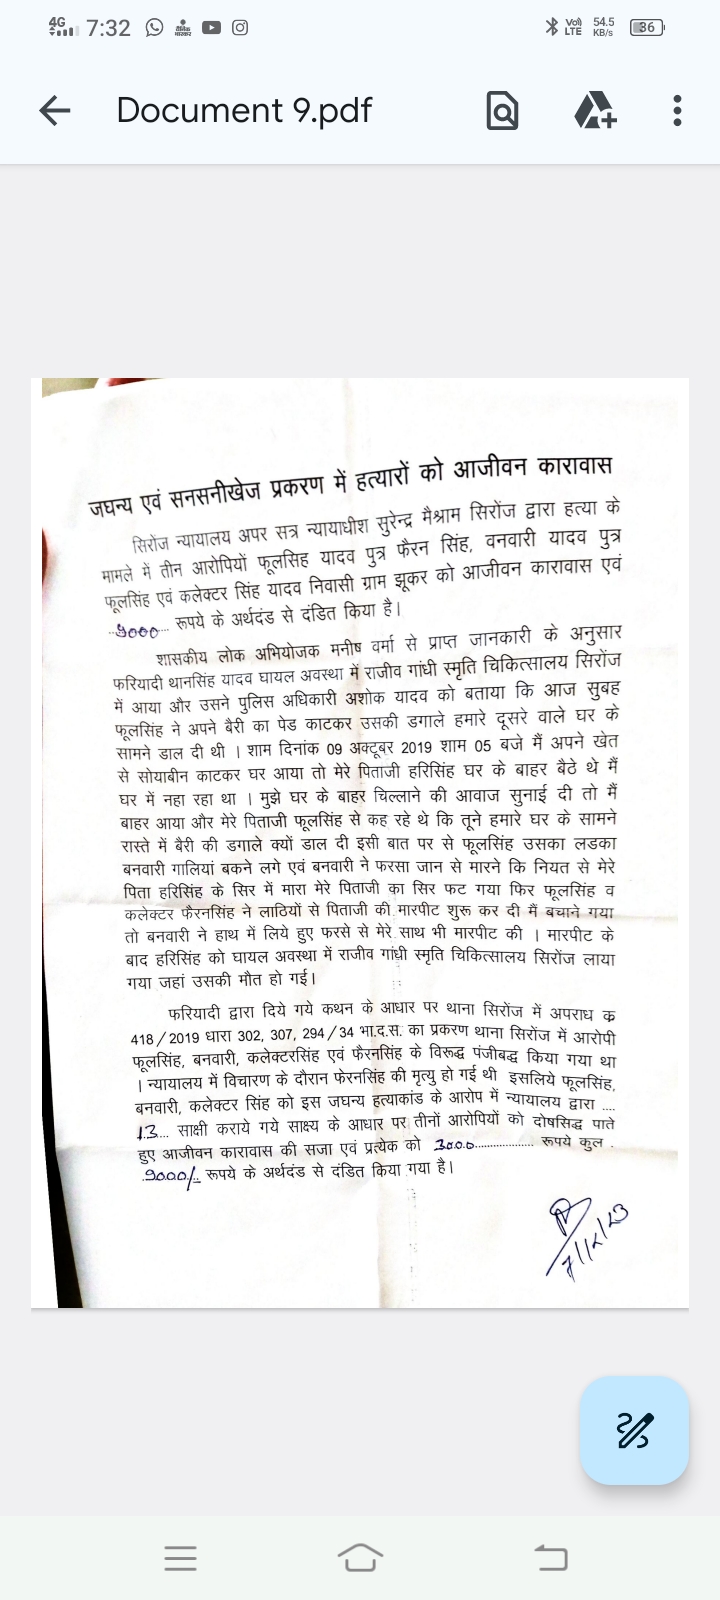 4G 7:32 VoLTE 54.5 KB/s 36
Document 9.pdf
जघन्य एवं सनसनीखेज प्रकरण में हत्यारों को आजीवन कारावास
सिरोंज न्यायालय अपर सत्र न्यायाधीश सुरेन्द्र मैश्राम सिरोंज द्वारा हत्या के
मामले में तीन आरोपियों फूलसिह यादव पुत्र फैरन सिंह, वनवारी यादव पुत्र
फूलसिंह एवं कलेक्टर सिंह यादव निवासी ग्राम झूकर को आजीवन कारावास एवं
9000 रूपये के अर्थदंड से दंडित किया है।
शासकीय लोक अभियोजक मनीष वर्मा से प्राप्त जानकारी के अनुसार
फरियादी थानसिंह यादव घायल अवस्था में राजीव गांधी स्मृति चिकित्सालय सिरोंज
में आया और उसने पुलिस अधिकारी अशोक यादव को बताया कि आज सुबह
फूलसिंह ने अपने बैरी का पेड काटकर उसकी डगाले हमारे दूसरे वाले घर के
सामने डाल दी थी । शाम दिनांक 09 अक्टूबर 2019 शाम 05 बजे मैं अपने खेत
से सोयाबीन काटकर घर आया तो मेरे पिताजी हरिसिंह घर के बाहर बैठे थे मैं
घर में नहा रहा था । मुझे घर के बाहर चिल्लाने की आवाज सुनाई दी तो मैं
बाहर आया और मेरे पिताजी फूलसिंह से कह रहे थे कि तूने हमारे घर के सामने
रास्ते में बैरी की डगाले क्यों डाल दी इसी बात पर से फूलसिंह उसका लडका
बनवारी गालियां बकने लगे एवं बनवारी ने फरसा जान से मारने कि नियत से मेरे
पिता हरिसिंह के सिर में मारा मेरे पिताजी का सिर फट गया फिर फूलसिंह व
कलेक्टर फैरनसिंह ने लाठियों से पिताजी की मारपीट शुरू कर दी मैं बचाने गया
तो बनवारी ने हाथ में लिये हुए फरसे से मेरे साथ भी मारपीट की । मारपीट के
बाद हरिसिंह को घायल अवस्था में राजीव गांधी स्मृति चिकित्सालय सिरोंज लाया
गया जहां उसकी मौत हो गई।
फरियादी द्वारा दिये गये कथन के आधार पर थाना सिरोंज में अपराध क
418/2019 धारा 302, 307, 294/34 भा.द.स. का प्रकरण थाना सिरोंज में आरोपी
फूलसिंह, बनवारी, कलेक्टरसिंह एवं फैरनसिंह के विरूद्ध पंजीबद्ध किया गया था
। न्यायालय में विचारण के दौरान फेरनसिंह की मृत्यु हो गई थी इसलिये फूलसिंह,
बनवारी, कलेक्टर सिंह को इस जघन्य हत्याकांड के आरोप में न्यायालय द्वारा ....
13... साक्षी कराये गये साक्ष्य के आधार पर तीनों आरोपियों को दोषसिद्ध पाते
हुए आजीवन कारावास की सजा एवं प्रत्येक को 3000................ रूपये कुल .
.9000/- रूपये के अर्थदंड से दंडित किया गया है।
7/12/23